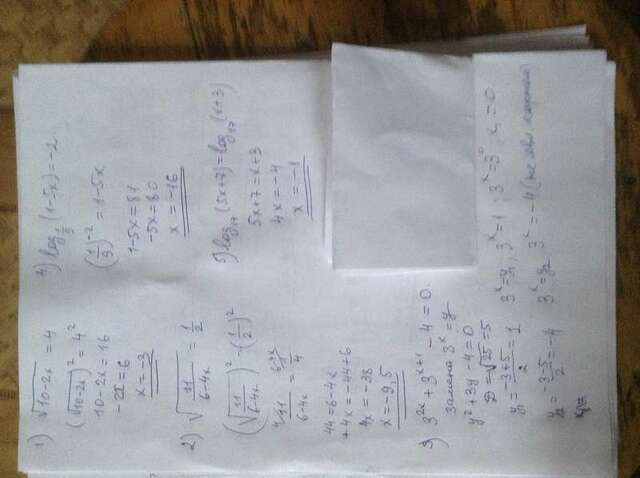 1) √10-2x = 4
(√10-2x)² = 4²
10-2x=16
-2x=6
x=-3
2) √11/6-4x = 1/2
(√11/6-4x)² = (1/2)²
11/6-4x = 1/4
44=6-4x
+4x=-44+6
4x=-38
x=-9,5
3) 3^2x + 3^x+1 - 4 = 0.
замена 3^x = y
y²+3y-4=0
D=√25=5
y₁ = -3+5/2 = 1
y₂ = -3-5/2 = -4
3^x = y₁; 3^x = 1; 3^x = 3^0; x₁ = 0
3^x = y₂ 3^x = -4
4) log 1/9 (1-5x) = -2
(1/9)^-2 = 1-5x
1-5x=81
-5x=80
x=-16
5) log₁₇(5x+7)=log₁₇(x+3)
5x+7=x+3
4x=-4
x=-1